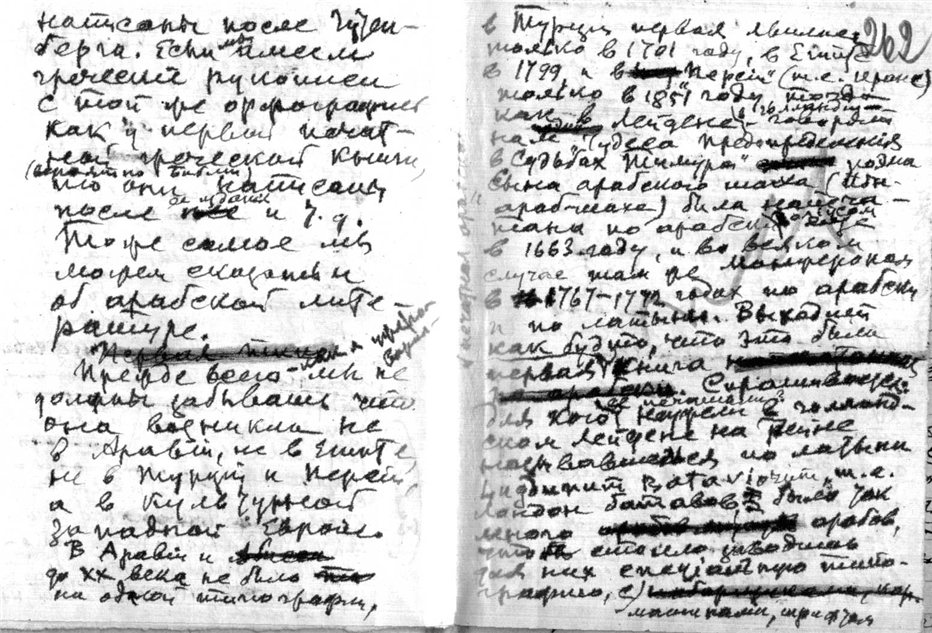 написаны после Гутен-
берга. Если мы имеем
греческие рукописи
с той же орфографией
как у первой печат-
ной греческой книги
(вероятно Библии)
то они написаны
после ее издания и т. д.
Тоже самое мы
можем сказать и
об арабской лите-
ратуре.
Первая
Прежде всего мы не
должны забывать что
она возникла не
в Аравии, не в Египте,
не в Турции и Персии,
а в культурной
западной Европе.
В Аравии и
до XX века не было
ни одной типографии,
262
в Турции первая явилась
только в 1701 году, в Египте
в 1799, и в Персии (т.е. Иране)
только в 1851 году тогда
как в Лейдене в Голландии
нам говорят "Чудеса предопределения
в судьбах Тимура"
сына арабского шаха (Ибн-
арабшахе) была напеча-
тана по арабски
в 1663 году, и во всяком
случае там же
в 1767-1772 годах по арабски
и по латыни. Выходит
как будто, что это была
первая книга
Спрашивается:
для кого в голланд-
ском Лейдене на Рейне
называвшемся по латыни
Batavorum, т.е.
батавов было так
много арабов,
что стоило заводить
для них специальную типо-
графию, с
шрифтом